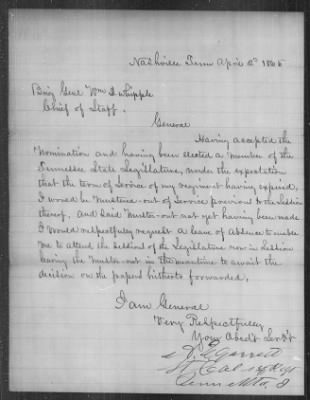 Nashville Tenn April 2d 1865
Brig Genl Wm D Whipple
Chief of Staff.
General
Having accepted the
Nomination and having been elected a member of the
Tennessee State Legislature, under the expectation
that the term of Service of my regiment having expired,
I would be Mustered-out of Service previous to the Session
thereof, and said Muster-out not yet having been made
I would respectfully request a leave of Absence to enable
me to attend the Session of the Legislature now in Session
leaving the Muster-out in the meantime to await the
decision on the papers hitherto forwarded,
I am General
Very Respectfully
Your Obed't Serv't
A. E. Garrett
Lt Col 1st Regt
Tenn Mtd. I